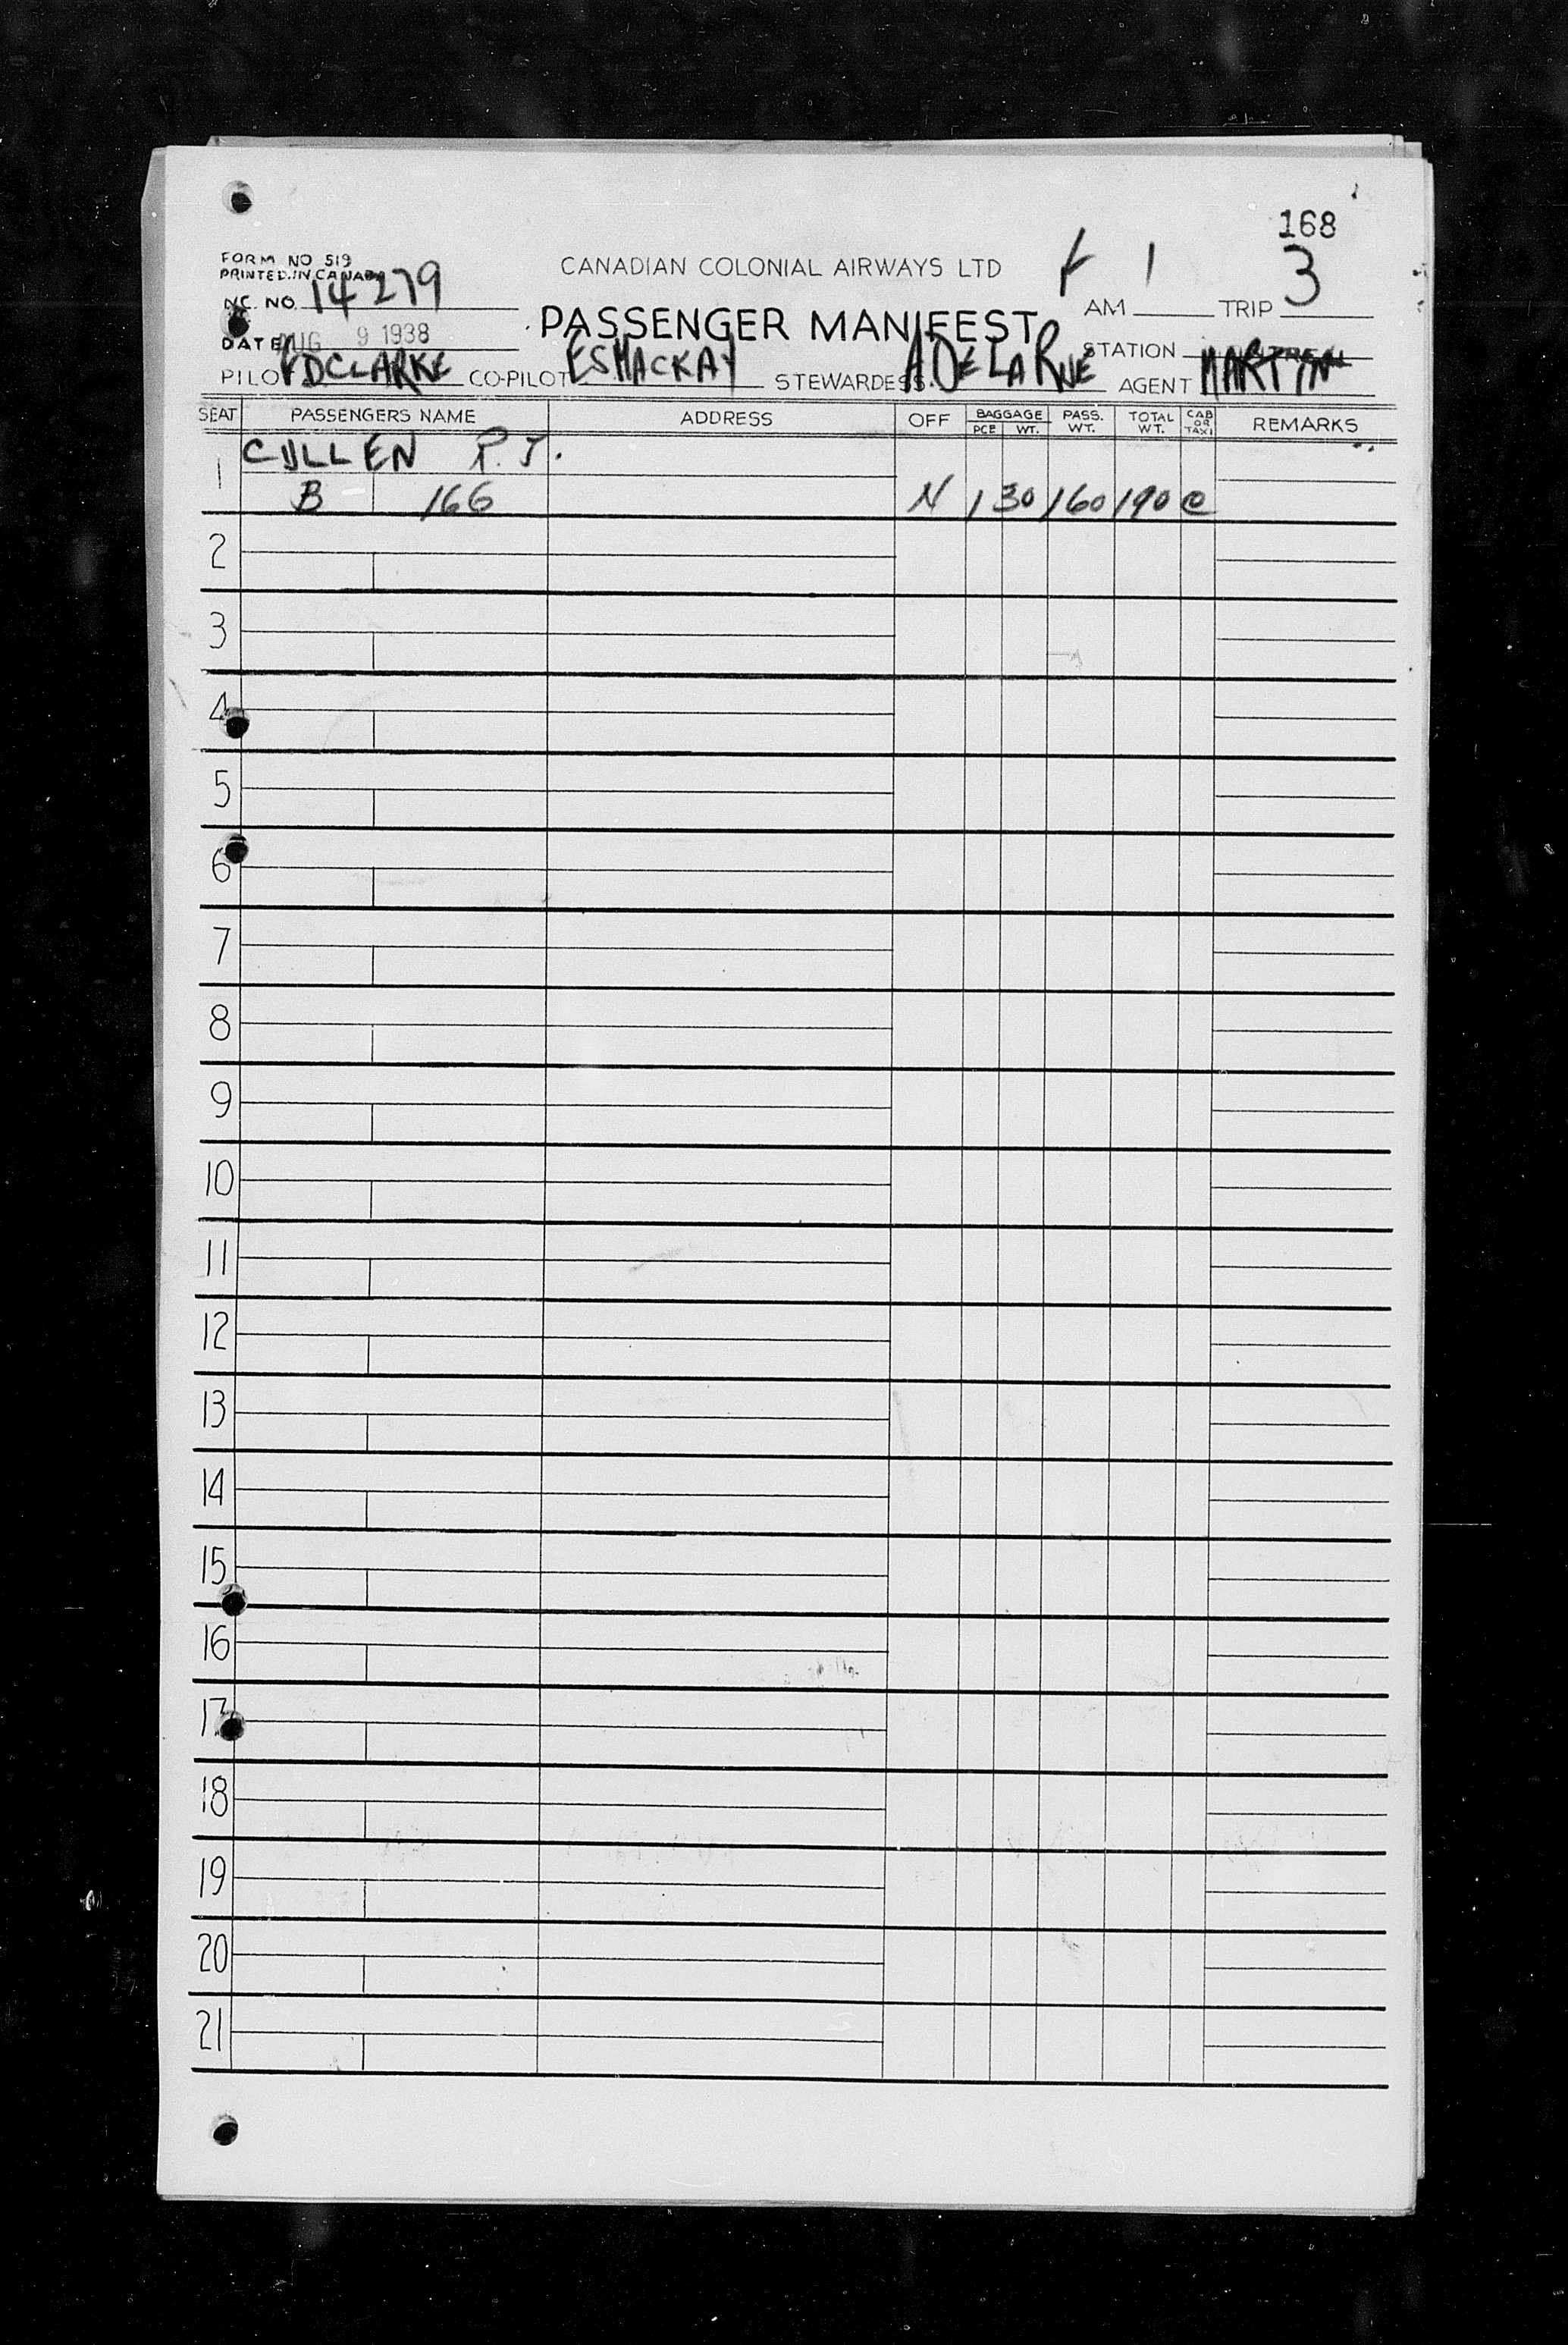 168
FORM NO 519
PRINTED IN CANADA
CANADIAN COLONIAL AIRWAYS LTD
1
NC. NO. 14279
PASSENGER MANIFEST
AM TRIP 3
DATE AUG 9 1938
STATION
PILOT FDCLARKE CO-PILOT ESMACKAY STEWARDESS ADELARUE AGENT MARTIN
SEAT PASSENGERS NAME ADDRESS OFF BAGGAGE PCE WT. PASS. WT. TOTAL WT. CAB OR TAXI REMARKS
1 CULLEN P.J.
B 166 N 1 30 160 190 C
2
3
4
5
6
7
8
9
10
11
12
13
14
15
16
17
18
19
20
21